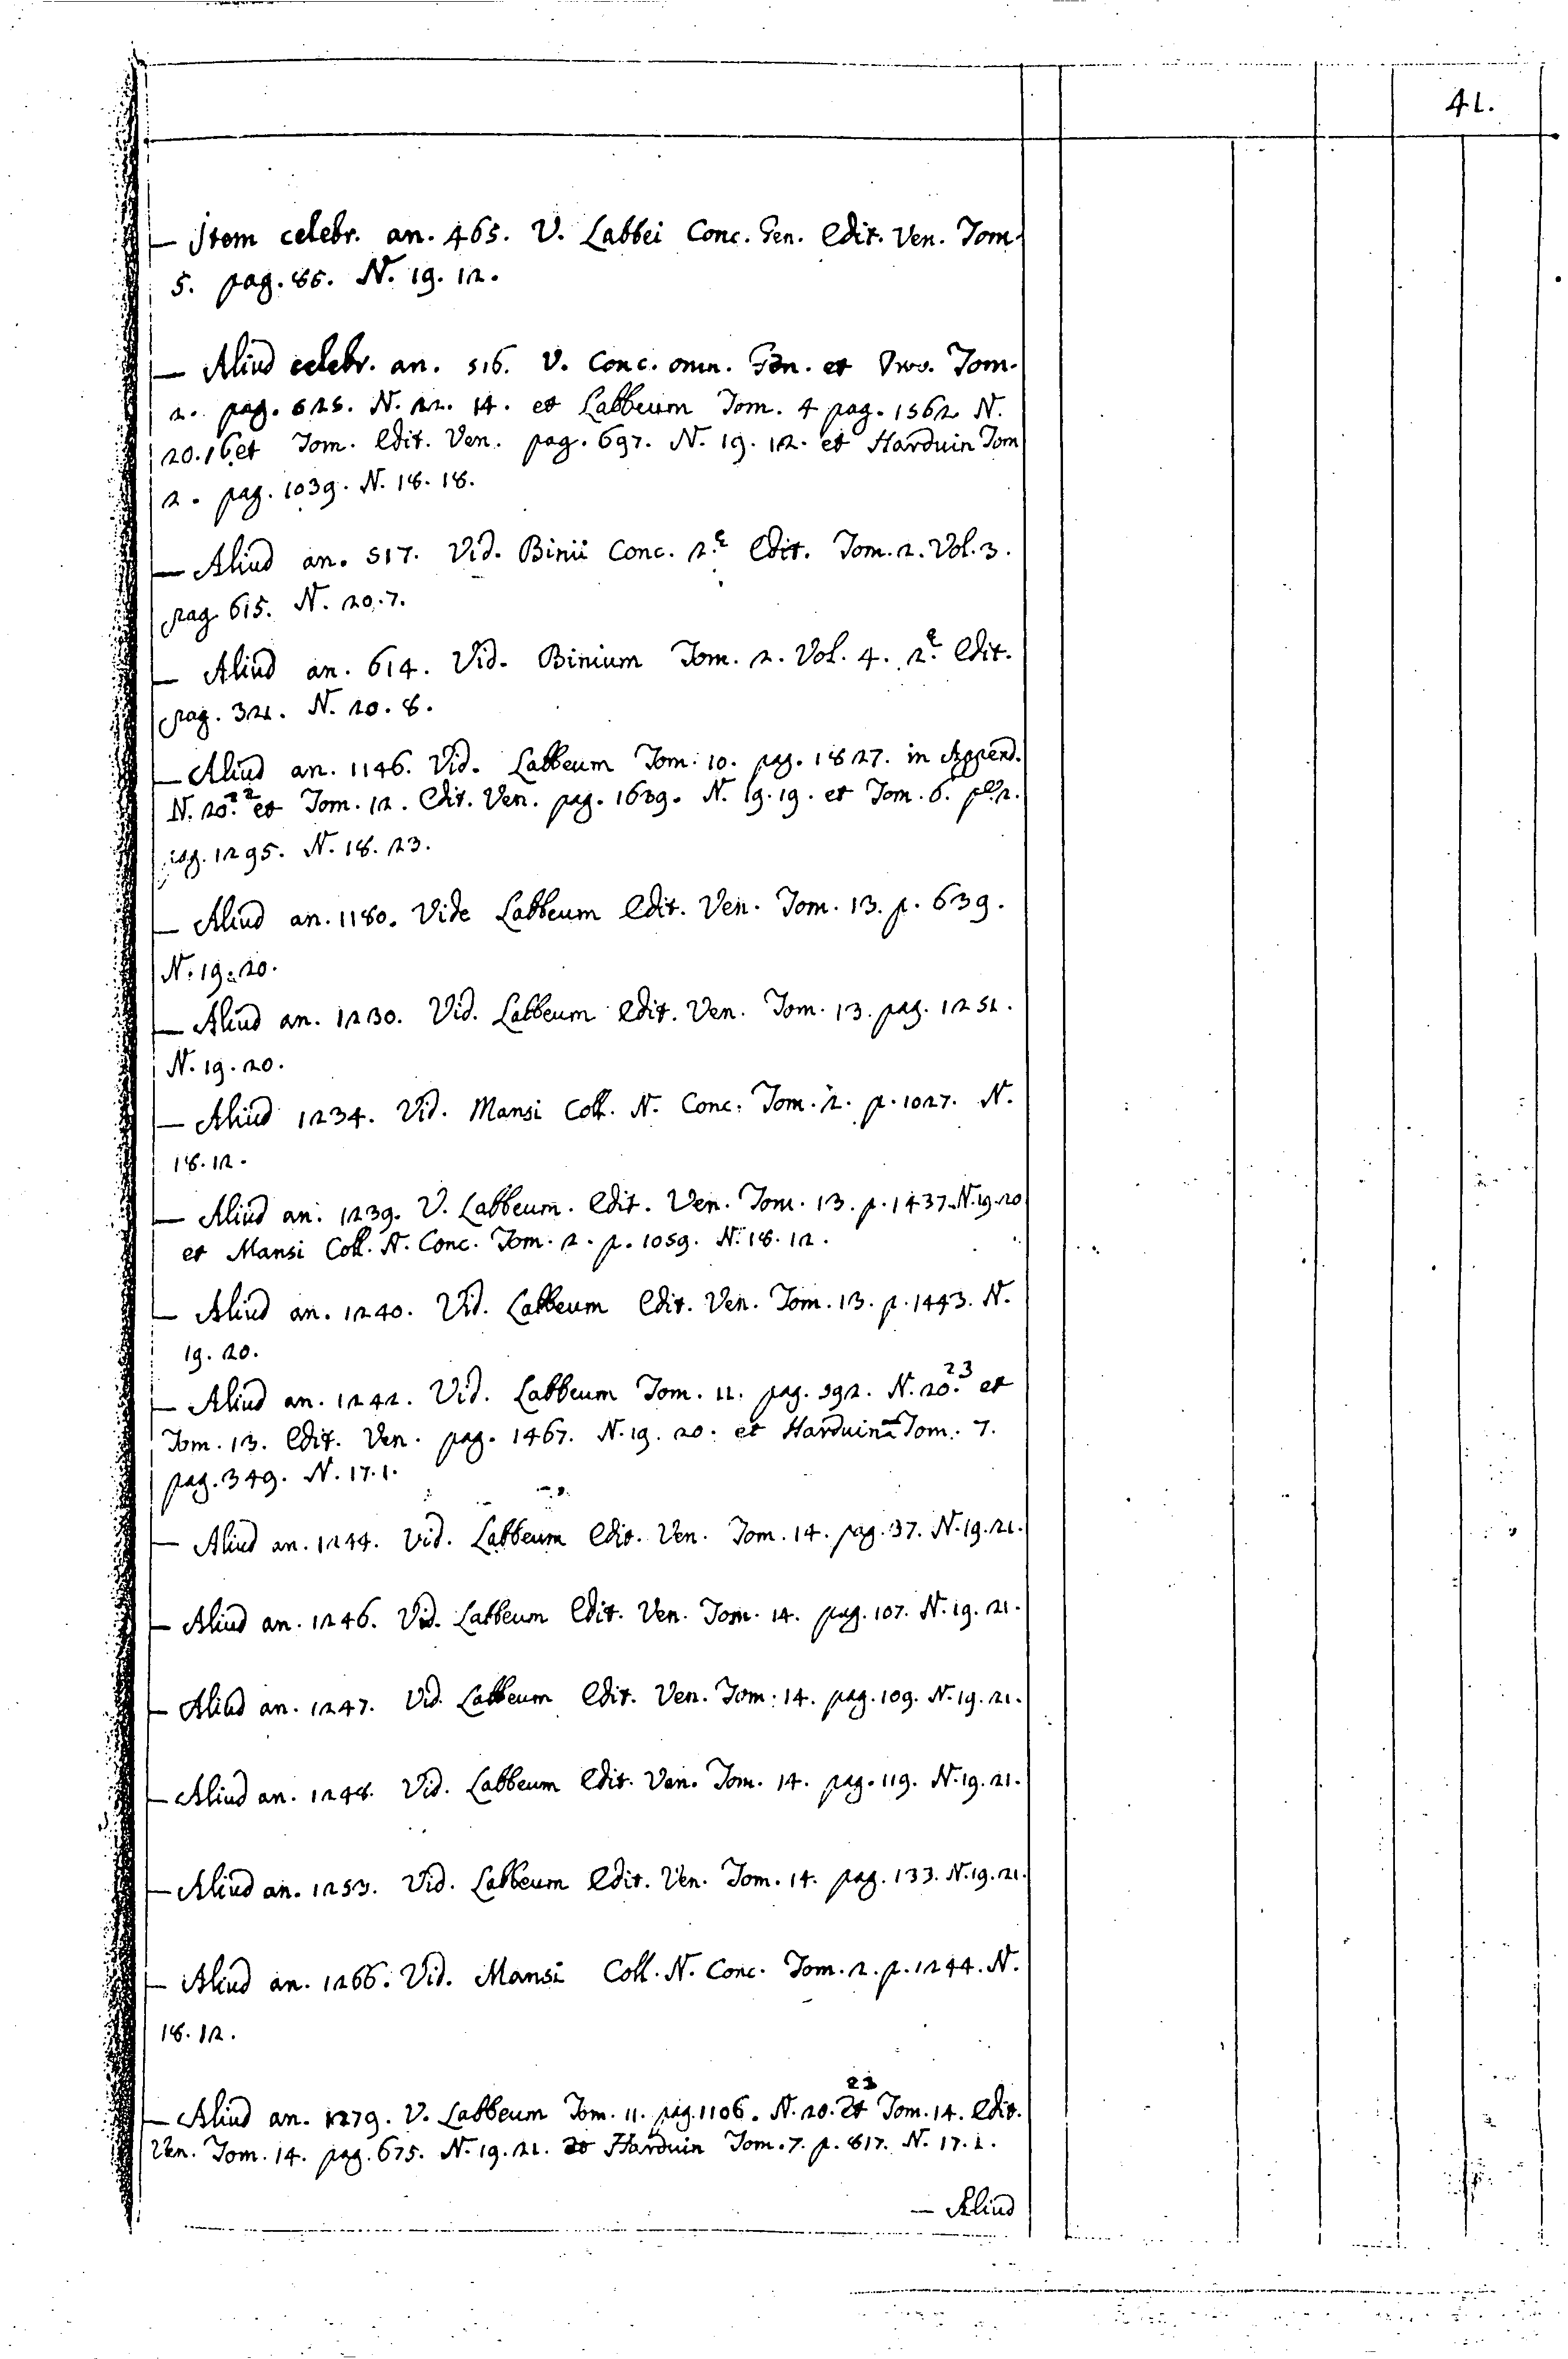 41.
— Item celebr. an. 465. V. Labbei Conc. Gen. Edit. Ven. Tom.
5. pag. 86. N. 19. 12.
— Aliud celebr. an. 516. V. Conc. omn. Gen. et Prov. Tom.
2. pag. 625. N. 22. 14. et Labbeum Tom. 4 pag. 1562 N.
20. 16 et Tom. Edit. Ven. pag. 697. N. 19. 12. et Harduin Tom
2. pag. 1039. N. 18. 18.
— Aliud an. 517. Vid. Binii Conc. 2.e Edit. Tom. 2. Vol. 3.
pag. 615. N. 20. 7.
— Aliud an. 614. Vid. Binium Tom. 2. Vol. 4. 2.e Edit.
pag. 321. N. 20. 8.
— Aliud an. 1146. Vid. Labbeum Tom. 10. pag. 1827. in Append.
N. 20. 22 et Tom. 12. Edit. Ven. pag. 1639. N. 19. 19. et Tom. 6. p.e 2.
pag. 1295. N. 18. 23.
— Aliud an. 1180. Vide Labbeum Edit. Ven. Tom. 13. p. 639.
N. 19. 20.
— Aliud an. 1230. Vid. Labbeum Edit. Ven. Tom. 13. pag. 1251.
N. 19. 20.
— Aliud 1234. Vid. Mansi Coll. N. Conc. Tom. 2. p. 1027. N.
18. 12.
— Aliud an. 1239. V. Labbeum. Edit. Ven. Tom. 13. p. 1437. N. 19. 20
et Mansi Coll. N. Conc. Tom. 2. p. 1059. N. 18. 12.
— Aliud an. 1240. Vid. Labbeum Edit. Ven. Tom. 13. p. 1443. N.
19. 20.
— Aliud an. 1242. Vid. Labbeum Tom. 11. pag. 592. N. 20. 23 et
Tom. 13. Edit. Ven. pag. 1467. N. 19. 20. et Harduin Tom. 7.
pag. 349. N. 17. 1.
— Aliud an. 1244. Vid. Labbeum Edit. Ven. Tom. 14. pag. 37. N. 19. 21.
— Aliud an. 1246. Vid. Labbeum Edit. Ven. Tom. 14. pag. 107. N. 19. 21.
— Aliud an. 1247. Vid. Labbeum Edit. Ven. Tom. 14. pag. 109. N. 19. 21.
— Aliud an. 1248. Vid. Labbeum Edit. Ven. Tom. 14. pag. 119. N. 19. 21.
— Aliud an. 1253. Vid. Labbeum Edit. Ven. Tom. 14. pag. 133. N. 19. 21.
— Aliud an. 1266. Vid. Mansi Coll. N. Conc. Tom. 2. p. 1244. N.
18. 12.
— Aliud an. 1279. V. Labbeum Tom. 11. pag. 1106. N. 20. 23 et Tom. 14. Edit.
Ven. Tom. 14. pag. 675. N. 19. 21. et Harduin Tom. 7. p. 817. N. 17. 1.
— Aliud